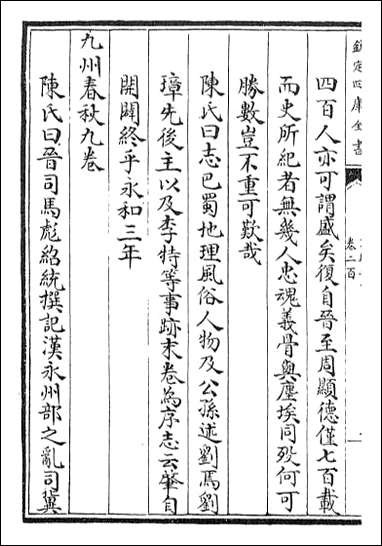 欽定四庫全書
卷二百
四百人亦可謂盛矣復自晉至周顯德僅七百載
而史所紀者無幾人忠魂義骨與塵埃同歿何可
勝數豈不重可歎哉
陳氏曰志巴蜀地理風俗人物及公孫述劉馬劉
璋先後主以及李特等事跡末卷為序志云肇自
開闢終乎永和三年
九州春秋九卷
陳氏曰晉司馬彪紹統撰記漢永州部之亂司冀